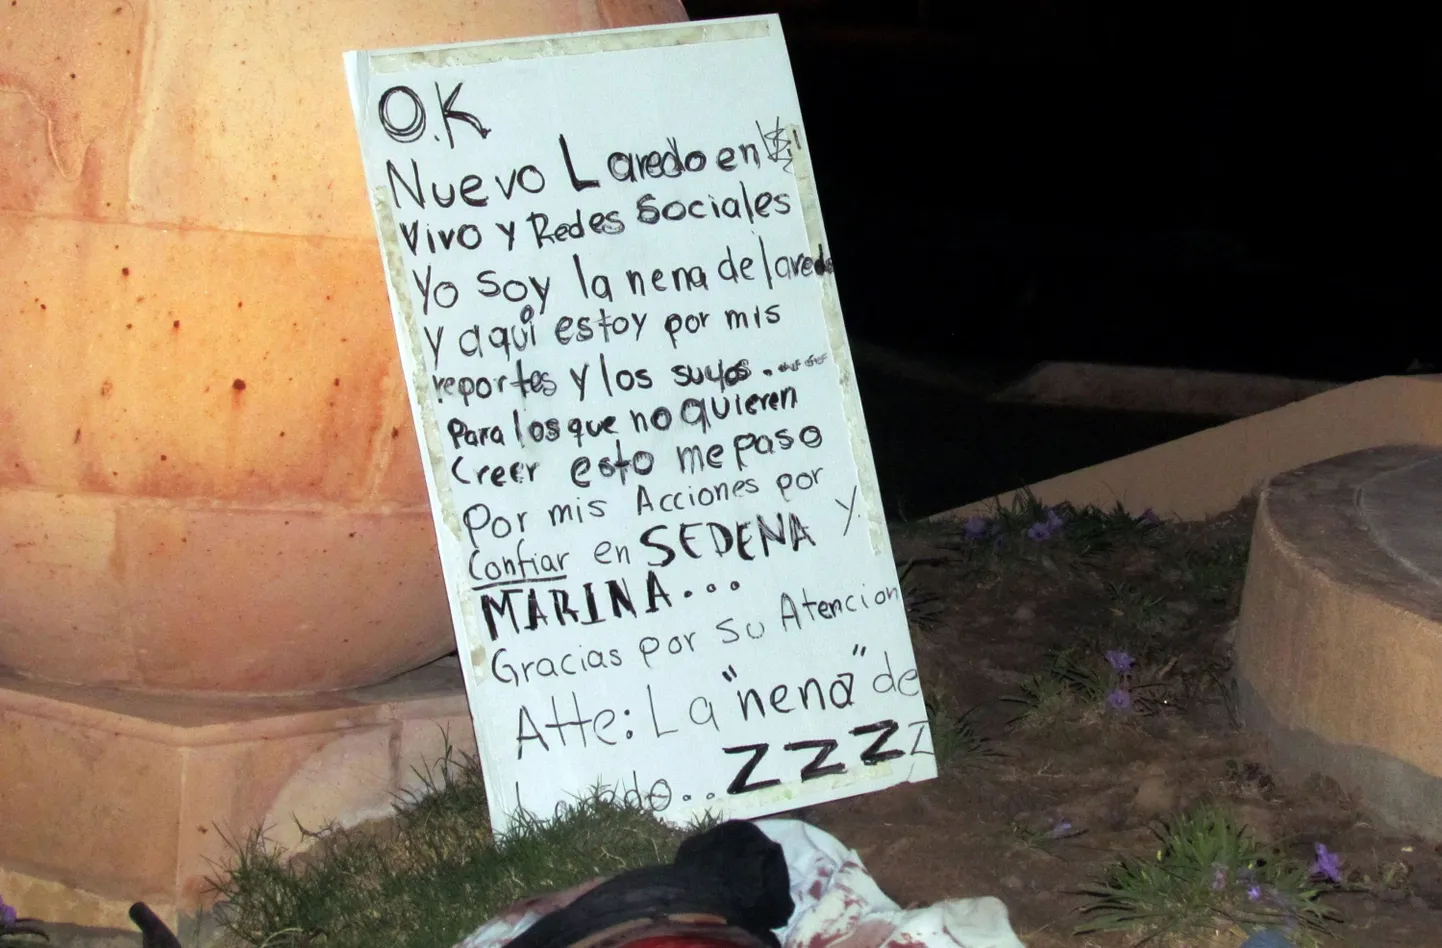 O.K
Nuevo Laredo en
Vivo y Redes Sociales
Yo soy la nena de laredo
y aquí estoy por mis
reportes y los suyos......
para los que no quieren
Creer esto me paso
por mis Acciones por
Confiar en SEDENA y
MARINA...
Gracias por su Atencion
Atte: La "nena" de
Laredo.. ZZZZ